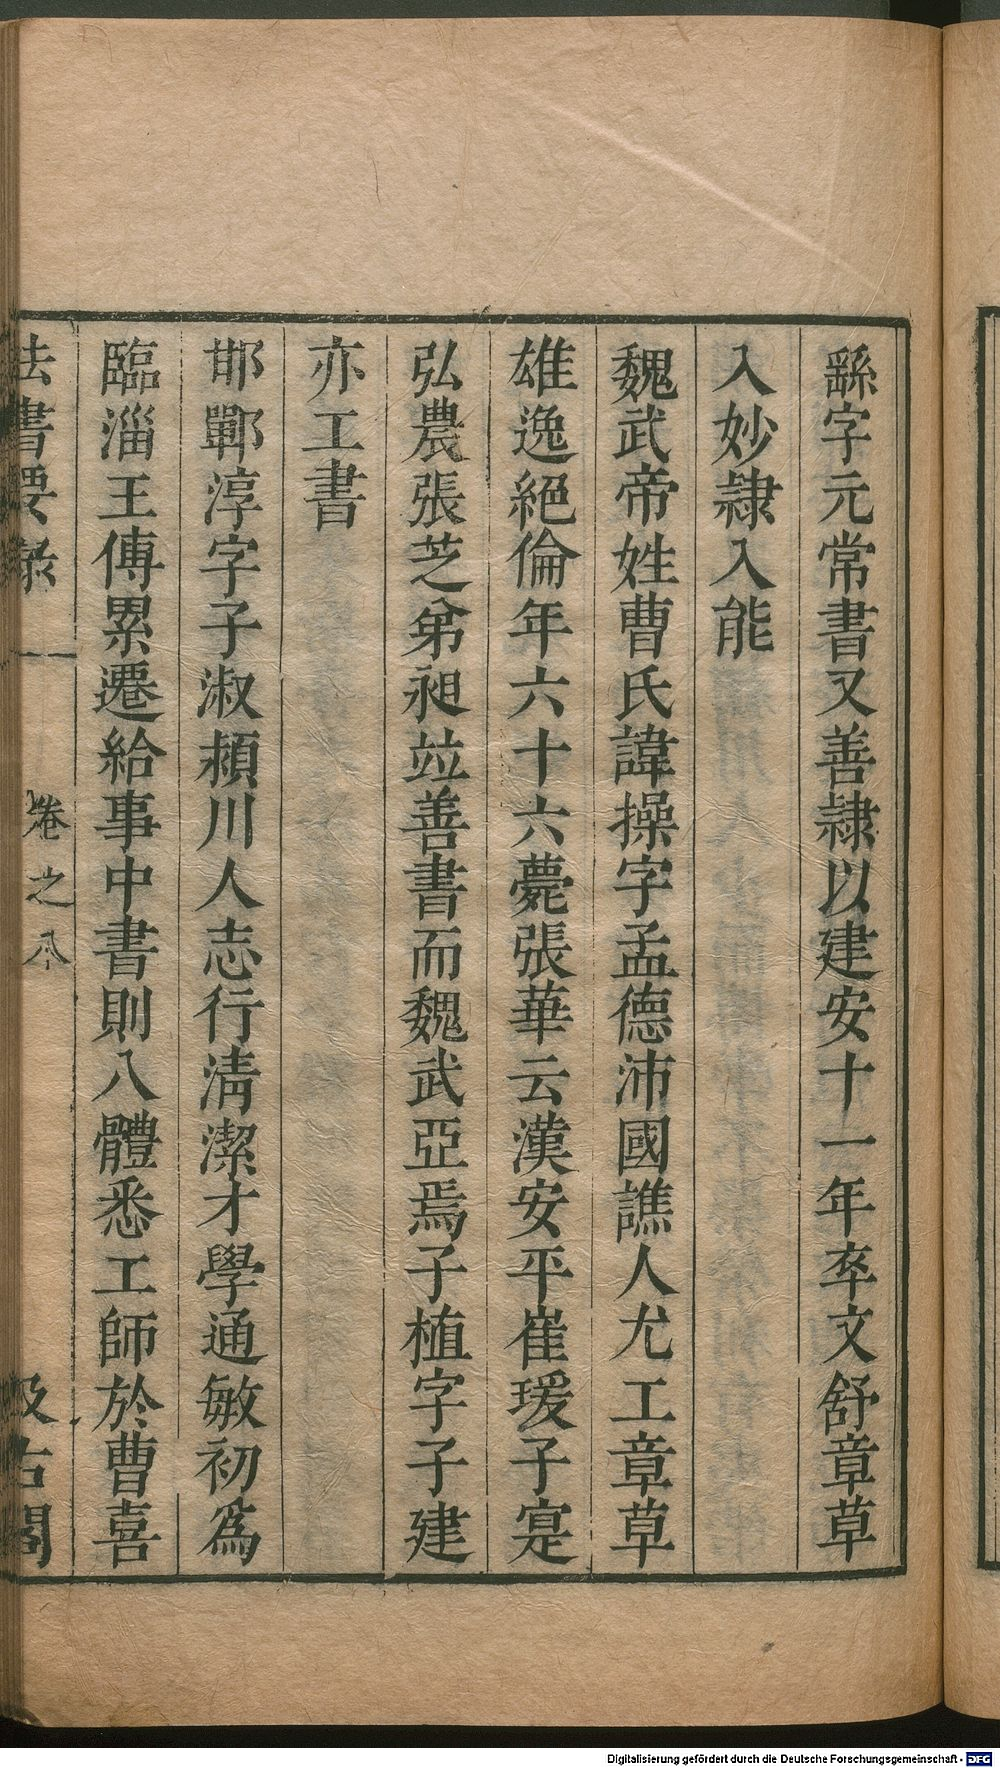 繇字元常書又善隷以建安十一年卒文舒章草
入妙隷入能
魏武帝姓曹氏諱操字孟德沛國譙人尤工章草
雄逸絕倫年六十六薨張華云漢安平崔瑗子寔
弘農張芝弟昶竝善書而魏武亞焉子植字子建
亦工書
邯鄲淳字子淑潁川人志行淸潔才學通敏初爲
臨淄王傅累遷給事中書則八體悉工師於曹喜
法書要錄 卷之八 汲古閣
Digitalisierung gefördert durch die Deutsche Forschungsgemeinschaft - DFG